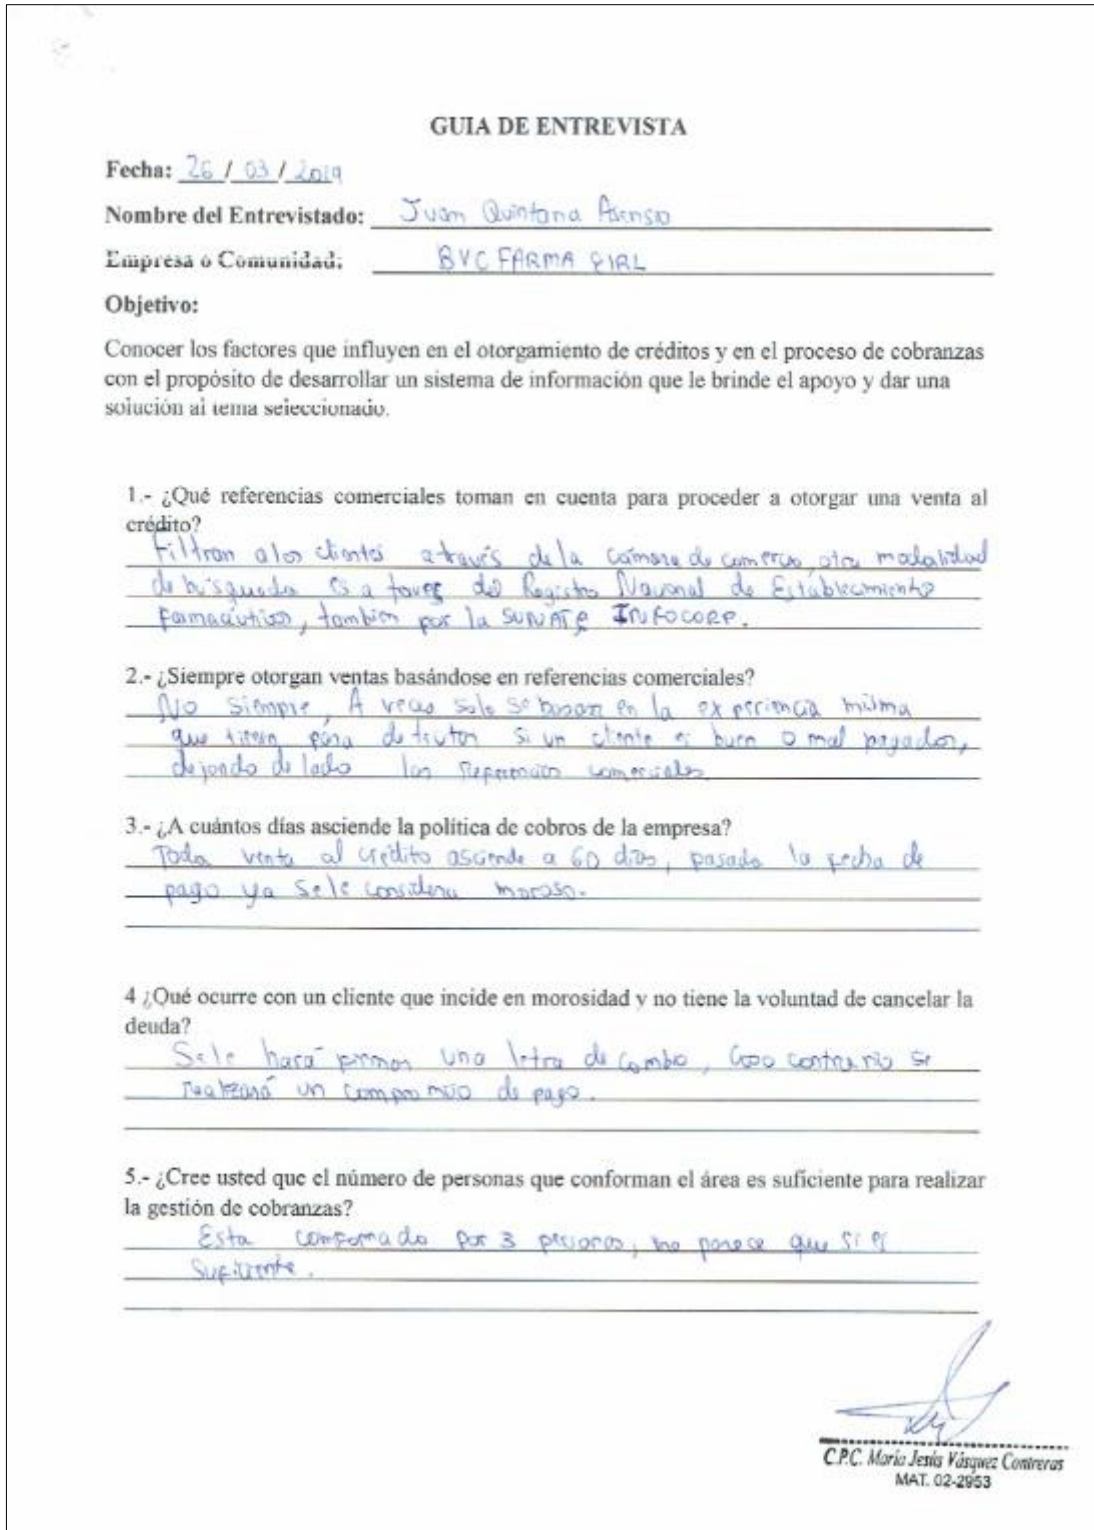 GUIA DE ENTREVISTA
Fecha: 26 / 03 / 2019
Nombre del Entrevistado: Juan Quintana Asensio
Empresa o Comunidad: BVC FARMA EIRL
Objetivo:
Conocer los factores que influyen en el otorgamiento de créditos y en el proceso de cobranzas
con el propósito de desarrollar un sistema de información que le brinde el apoyo y dar una
solución al tema seleccionado.
1.- ¿Qué referencias comerciales toman en cuenta para proceder a otorgar una venta al
crédito?
Filtran a los clientes a través de la camara de comercio, otra modalidad
de búsqueda es a traves del Registro Nacional de Establecimiento
Farmacéutico, tambien por la SUNAT e INFOCORP.
2.- ¿Siempre otorgan ventas basándose en referencias comerciales?
No siempre, A veces solo se basan en la experiencia misma
que tienen para detectar si un cliente es buen o mal pagador,
dejando de lado las referencias comerciales
3.- ¿A cuántos días asciende la política de cobros de la empresa?
Toda venta al crédito asciende a 60 dias, pasado la fecha de
pago ya se le considera moroso.
4 ¿Qué ocurre con un cliente que incide en morosidad y no tiene la voluntad de cancelar la
deuda?
Se le hará firmar una letra de cambio, caso contrario se
realizará un compromiso de pago.
5.- ¿Cree usted que el número de personas que conforman el área es suficiente para realizar
la gestión de cobranzas?
Esta conformado por 3 personas, me parece que si es
suficiente.
C.P.C. María Jesús Vásquez Contreras
MAT. 02-2953